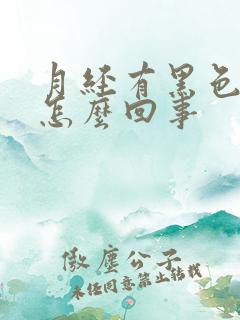 月経有黑色
怎麼回事
傲塵公子
未經同意禁止轉載